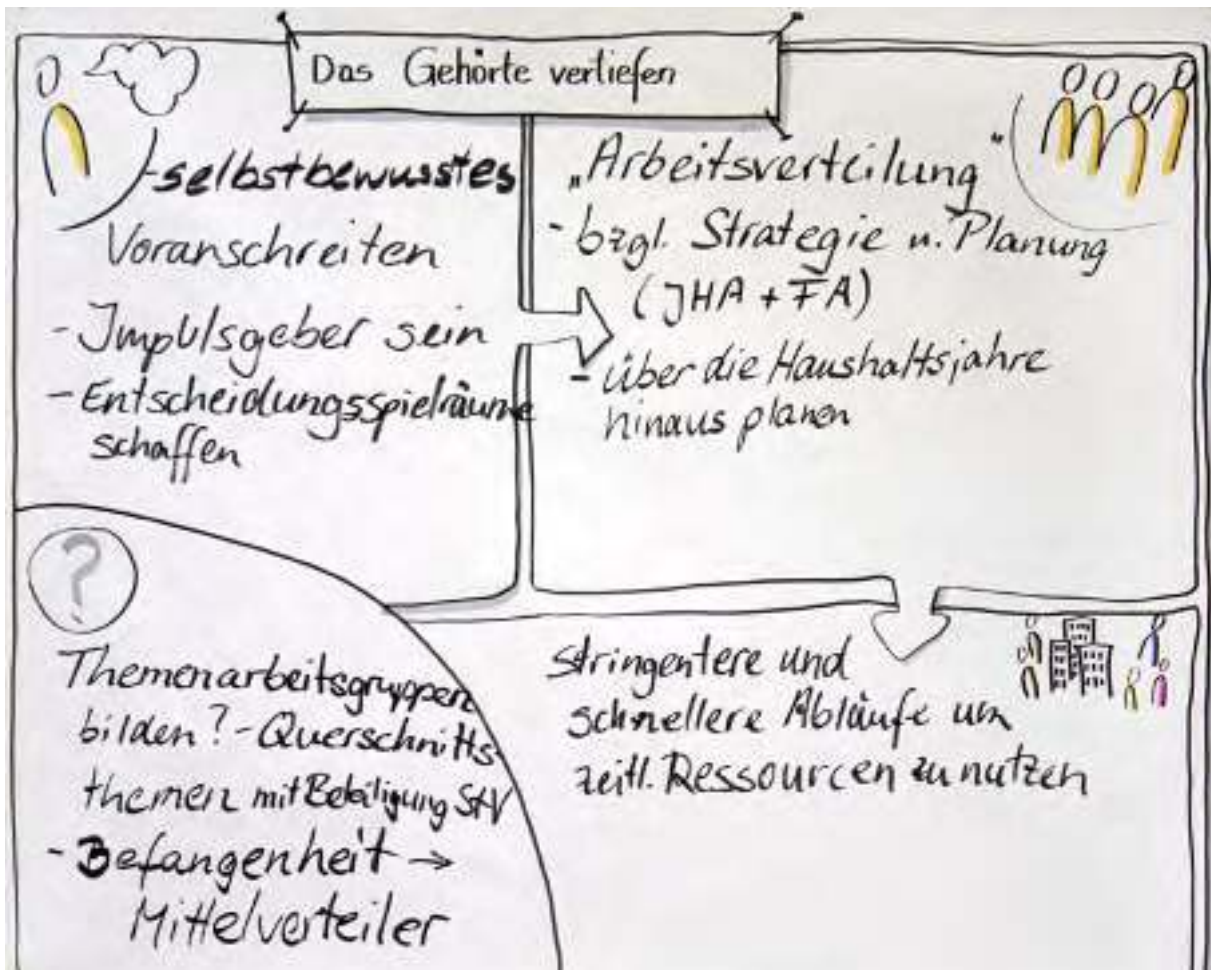 Das Gehörte vertiefen
- selbstbewusstes
Voranschreiten
- Impulsgeber sein
- Entscheidungsspielräume
schaffen
„Arbeitsverteilung"
- bzgl. Strategie u. Planung
(JHA + FA)
- über die Haushaltsjahre
hinaus planen
?
Themenarbeitsgruppen
bilden? - Querschnitts
themen mit Beteiligung StV
- Befangenheit →
Mittelverteiler
stringentere und
schnellere Abläufe um
zeitl. Ressourcen zu nutzen